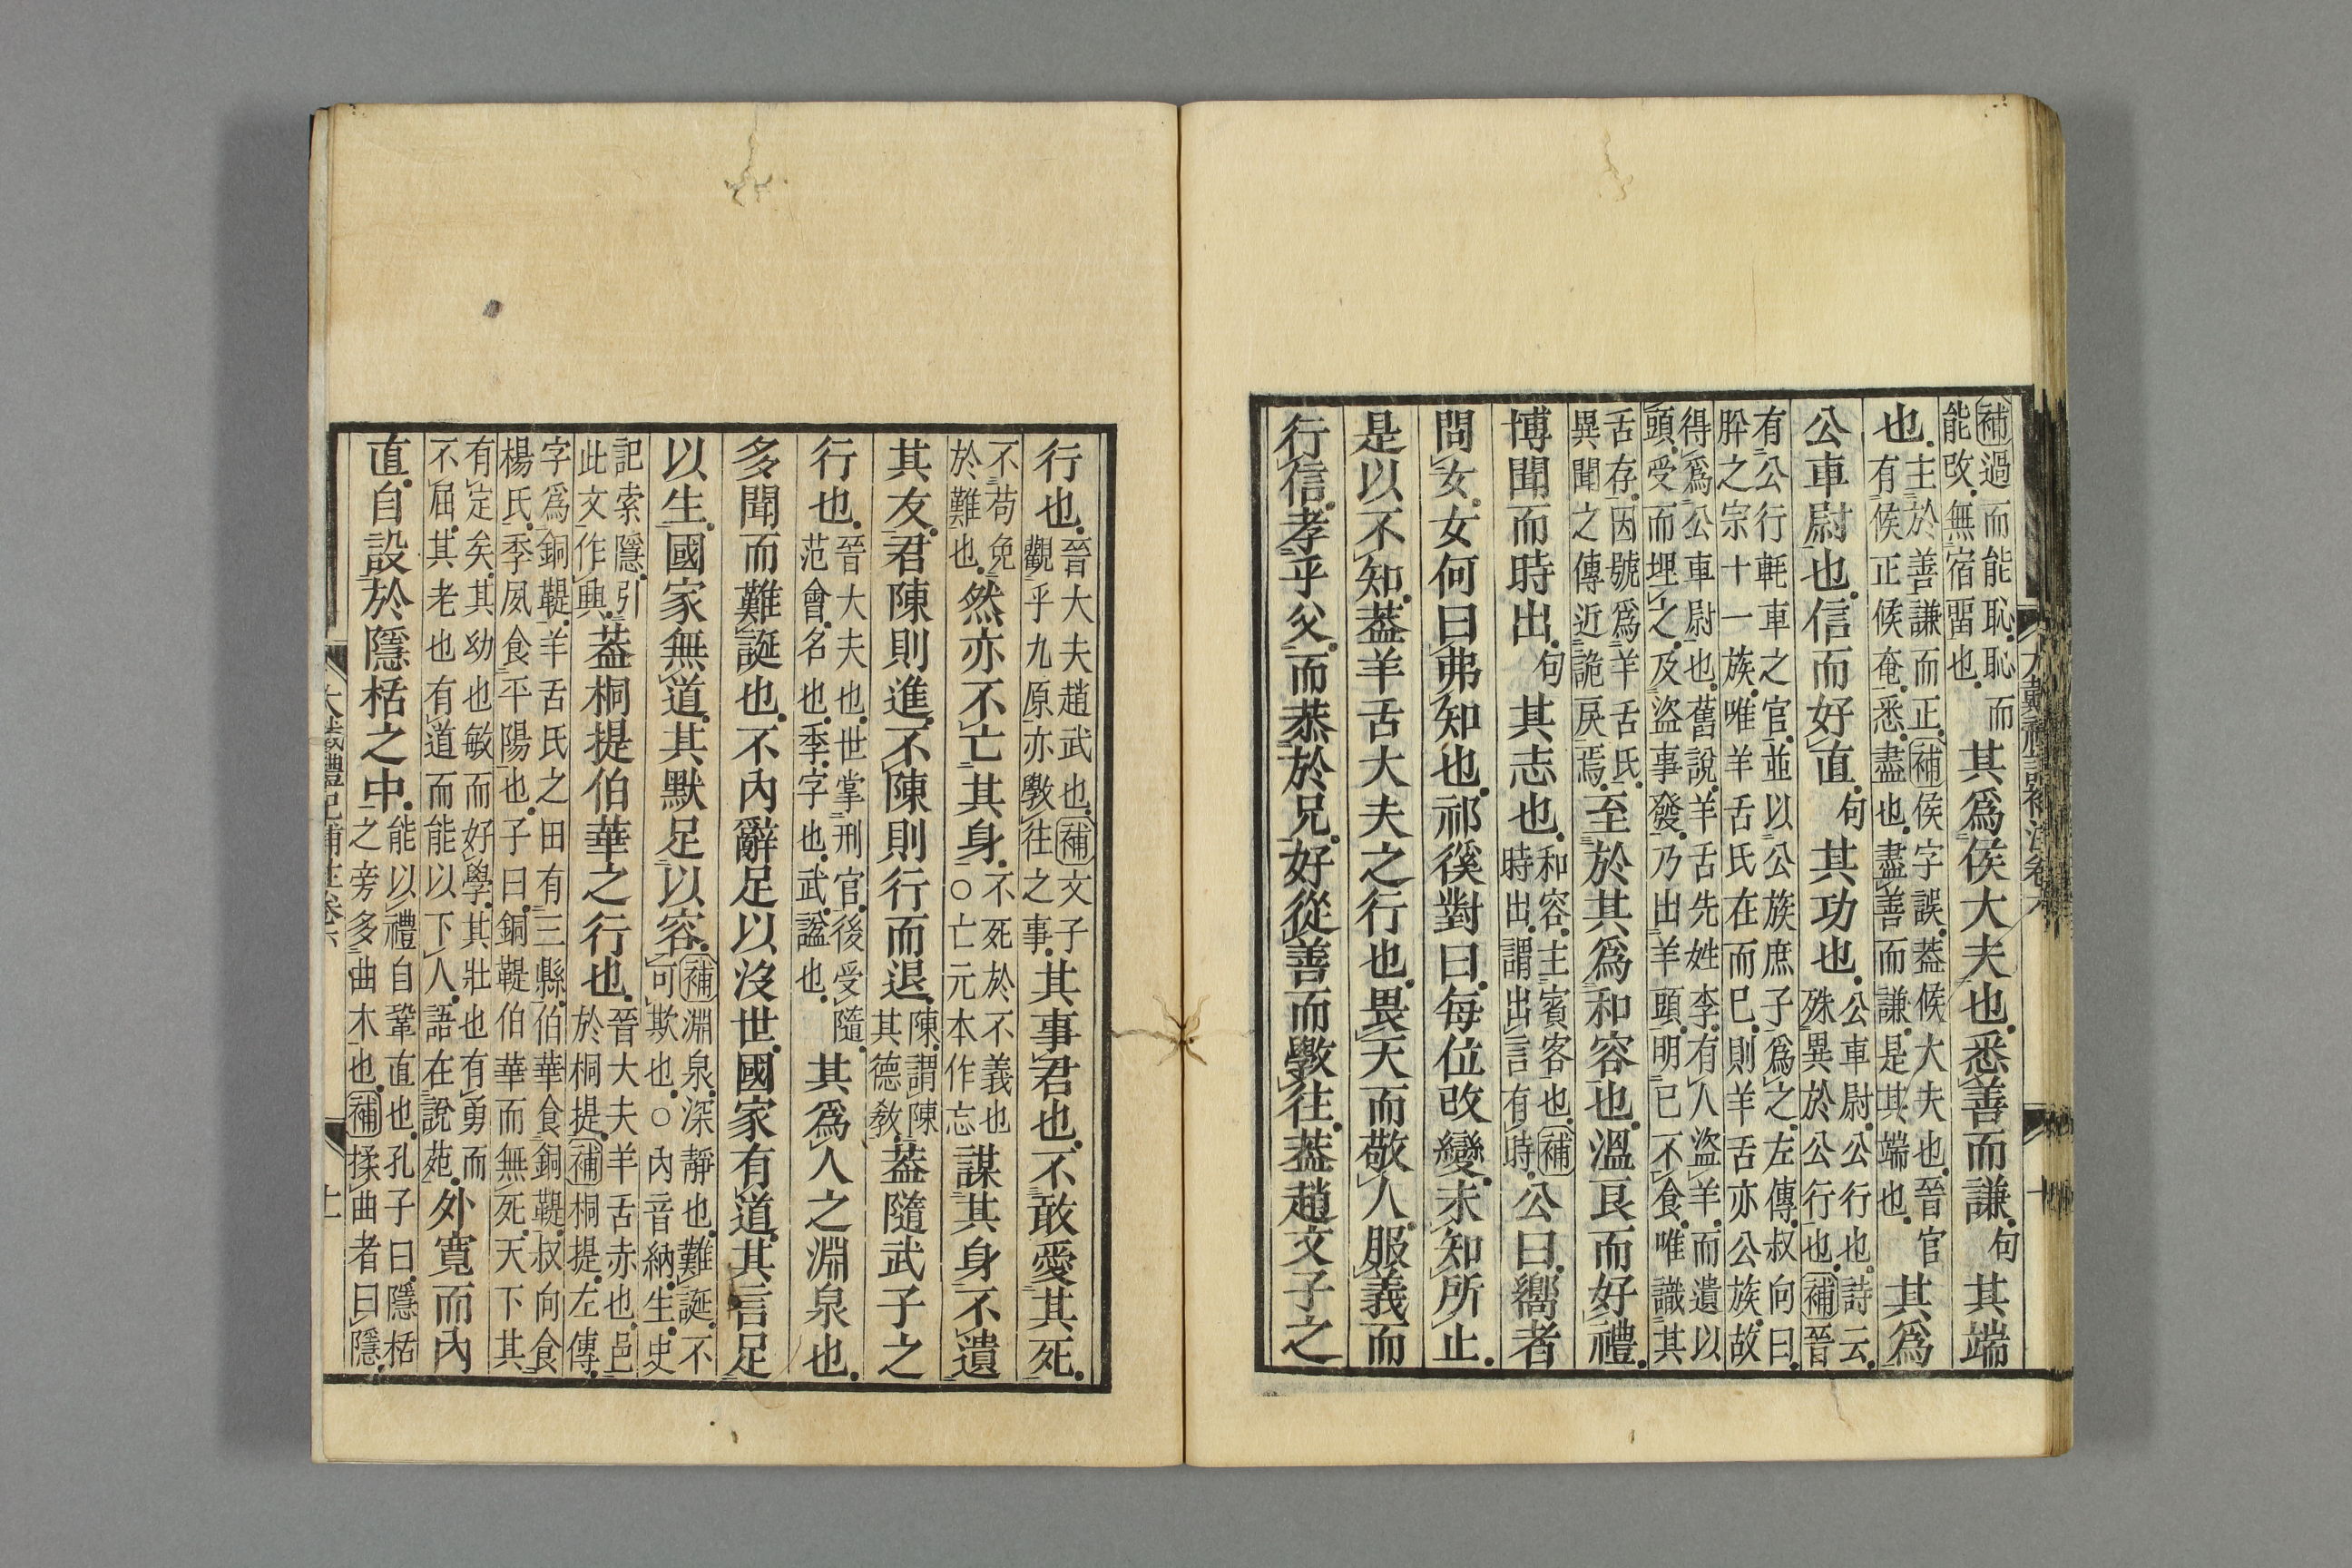 補過而能恥恥而
能改無宿畱也其爲侯大夫也悉善而謙句其端
也主於善謙而正補侯字誤葢候大夫也晉官
有候正候奄悉盡也盡善而謙是其端也其爲
公車尉也信而好直句其功也公車尉公行也詩云
殊異於公行也補晉
有公行軞車之官並以公族庶子爲之左傳叔向曰
肸之宗十一族唯羊舌氏在而已則羊舌亦公族故
得爲公車尉也舊說羊舌先姓李有人盜羊而遺以
頭受而埋之及盜事發乃出羊頭明已不食唯識其
舌存因號爲羊舌氏
異聞之傳近詭戾焉至於其爲和容也溫良而好禮
博聞而時出句其志也和容主賓客也補
時出謂出言有時公曰嚮者
問女女何曰弗知也祁徯對曰每位改變未知所止
是以不知葢羊舌大夫之行也畏天而敬人服義而
行信孝乎父而恭於兄好從善而斆往葢趙文子之
大戴禮記補注卷六
十
行也晉大夫趙武也補文子
觀乎九原亦斆往之事其事君也不敢愛其死
不苟免
於難也然亦不亡其身不死於不義也
○亡元本作忘謀其身不遺
其友君陳則進不陳則行而退陳謂陳
其德教葢隨武子之
行也晉大夫也世掌刑官後受隨
范會名也季字也武諡也其爲人之淵泉也
多聞而難誕也不內辭足以沒世國家有道其言足
以生國家無道其默足以容補淵泉深靜也難誕不
可欺也○內音納生史
記索隱引
此文作興葢桐提伯華之行也晉大夫羊舌赤也邑
於桐提補桐提左傳
字爲銅鞮羊舌氏之田有三縣伯華食銅鞮叔向食
楊氏季夙食平陽也子曰銅鞮伯華而無死天下其
有定矣其幼也敏而好學其壯也有勇而
不屈其老也有道而能以下人語在說苑外寛而內
直自設於隱栝之中能以禮自鞏直也孔子曰隱栝
之旁多曲木也補揉曲者曰隱
大戴禮記補注卷六
十一